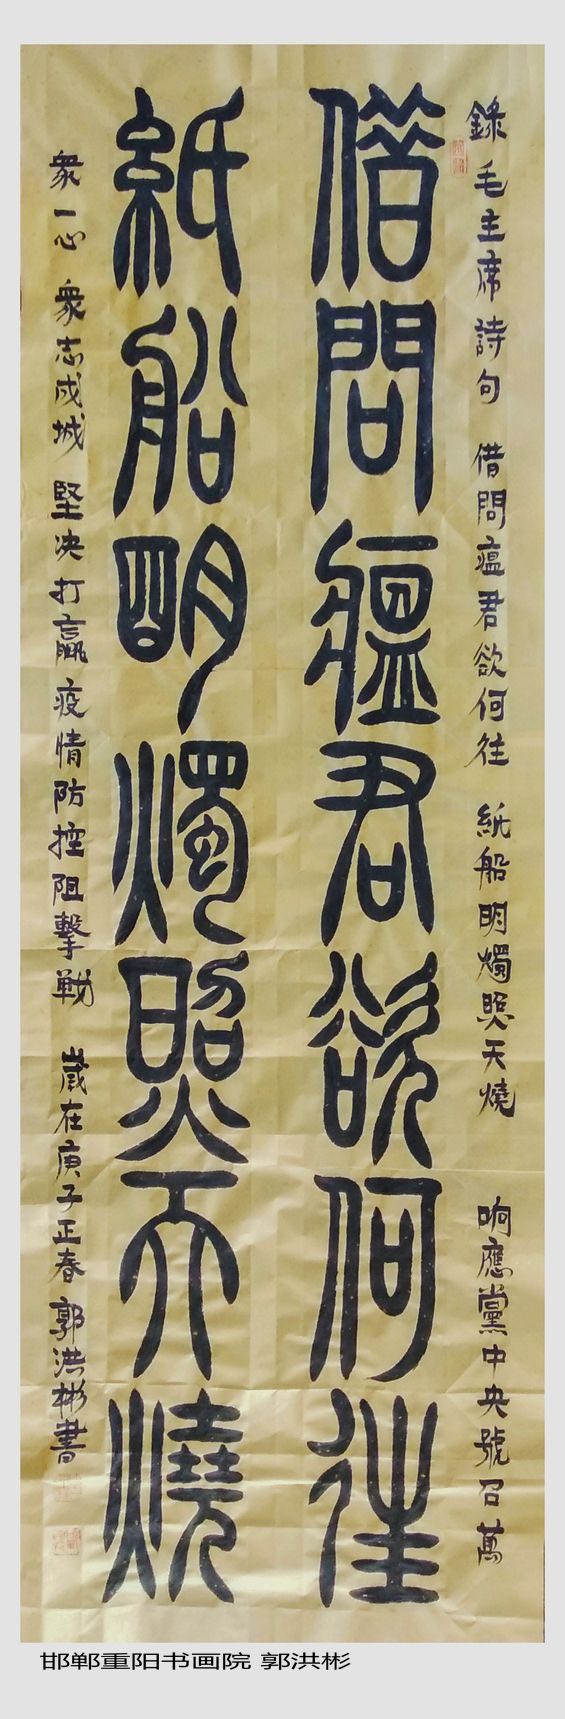 錄毛主席詩句 借問瘟君欲何往 紙船明燭照天燒 响應黨中央號召萬
借問瘟君欲何往
紙船明燭照天燒
衆一心 衆志成城 堅决打贏疫情防控阻擊戰 歲在庚子正春 郭洪彬書
邯郸重阳书画院 郭洪彬